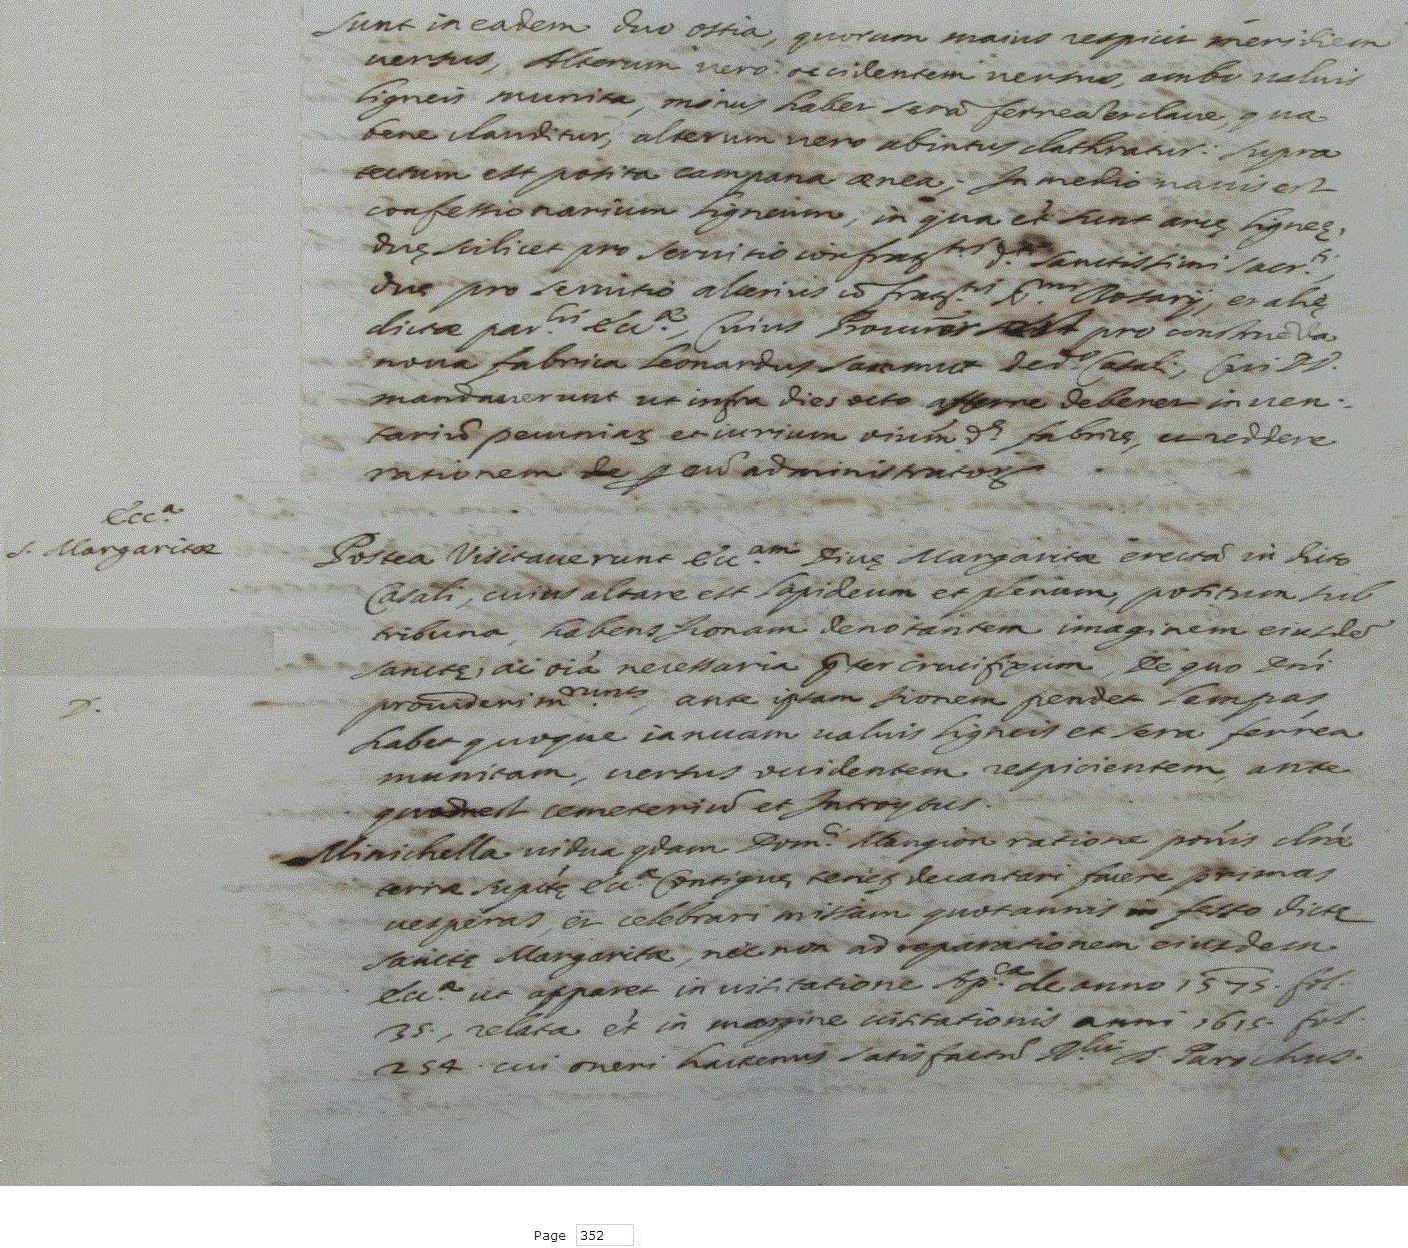 sunt in eadem duo ostia, quorum maius respicit meridiem
versus, Alterum vero occidentem versus, ambo valvis
ligneis munita, minus habet serã ferreã et clave, qua
bene clauditur, alterum vero abintus clathratur: supra
tectum est posita campana ænea; In medio navis est
confessionarium ligneum, in qua et sunt arcę ligneę,
duę scilicet pro servitio confrat.tis Sanctissimi Sacr.ti,
duę pro servitio alterius cõfrat.tis Rosarij, et alię
dictæ par.lis Ecc.æ, Cuius est pro construẽda
nova fabrica Leonardus Sammut de d.º Casali, Cui DD.
mandaverunt ut infra dies octo afferre deberet inven-
tariũ pecuniarum et iurium oium d.ę fabricę, et reddere
rationem de administrator
Ecc.a
S. Margaritæ
Postea Visitaverunt Ecc.am Divę Margaritæ erectã in dicto
Casali, cuius altare est lapideum et plenum, positum sub
tribuna, habens Iconam denotantem imaginem eiusdẽ
sanctę, ac oia necessaria pręter crucifixum, De quo Dni
D.
ante ipsam Iconem pendet lampas
habet quoque ianuam valvis ligneis et sera ferrea
munitam, versus occidentem respicientem, ante
quam est cemeteriũ et Introytus.
Minichella vidua qdam Dom.ci Mangion ratione
terræ Ecc.æ Contiguę decantari facere primas
vesperas, et celebrari missam quotannis in festo dictę
sanctę Margaritæ, nec non ad reparationem eiusdem
Ecc.æ ut apparet in visitatione Ap.ca de anno 1575. fol.
35., relata et in margine visitationis anni 1615. fol.
254. cui oneri hactenus satisfactũ D. Parochus.
Page 352